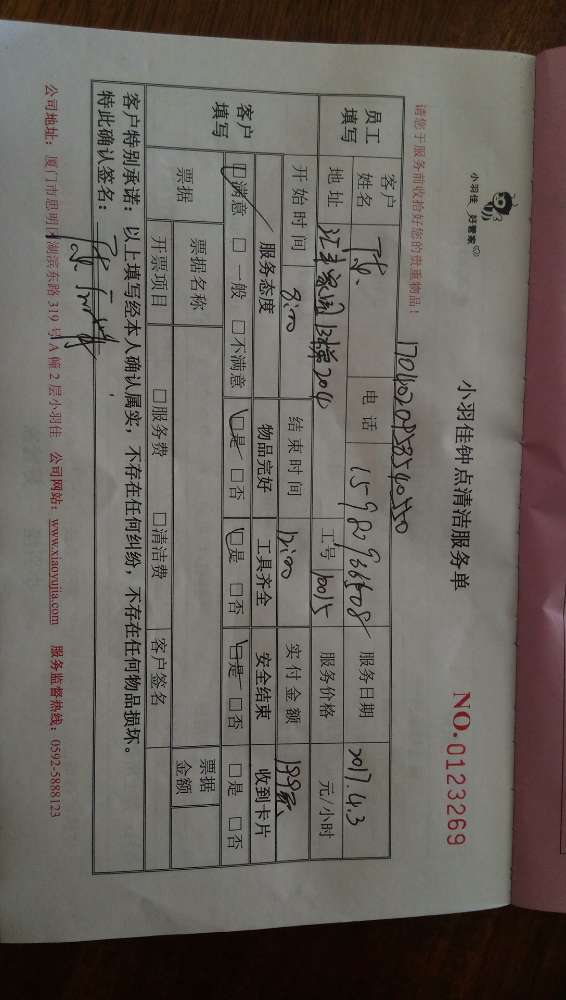 小羽佳 好管家
小羽佳钟点清洁服务单
NO. 0123269
请您于服务前收拾好您的贵重物品！
员工填写 客户姓名 电话 服务日期 2017.4.3
地址 工号 10015 服务价格 元/小时
客户填写 开始时间 8:00 结束时间 12:00 实付金额
服务态度 物品完好 工具齐全 安全结束 收到卡片
□满意 □一般 □不满意 □是 □否 □是 □否 □是 □否 □是 □否
票据 票据名称 票据金额
开票项目 □服务费 □清洁费 客户签名
客户特别承诺：以上填写经本人确认属实，不存在任何纠纷，不存在任何物品损坏。
特此确认签名：
公司地址：厦门市思明区湖滨东路 319 号 A 幢 2 层小羽佳 公司网站：www.xiaoyujia.com 服务监督热线：0592-5888123